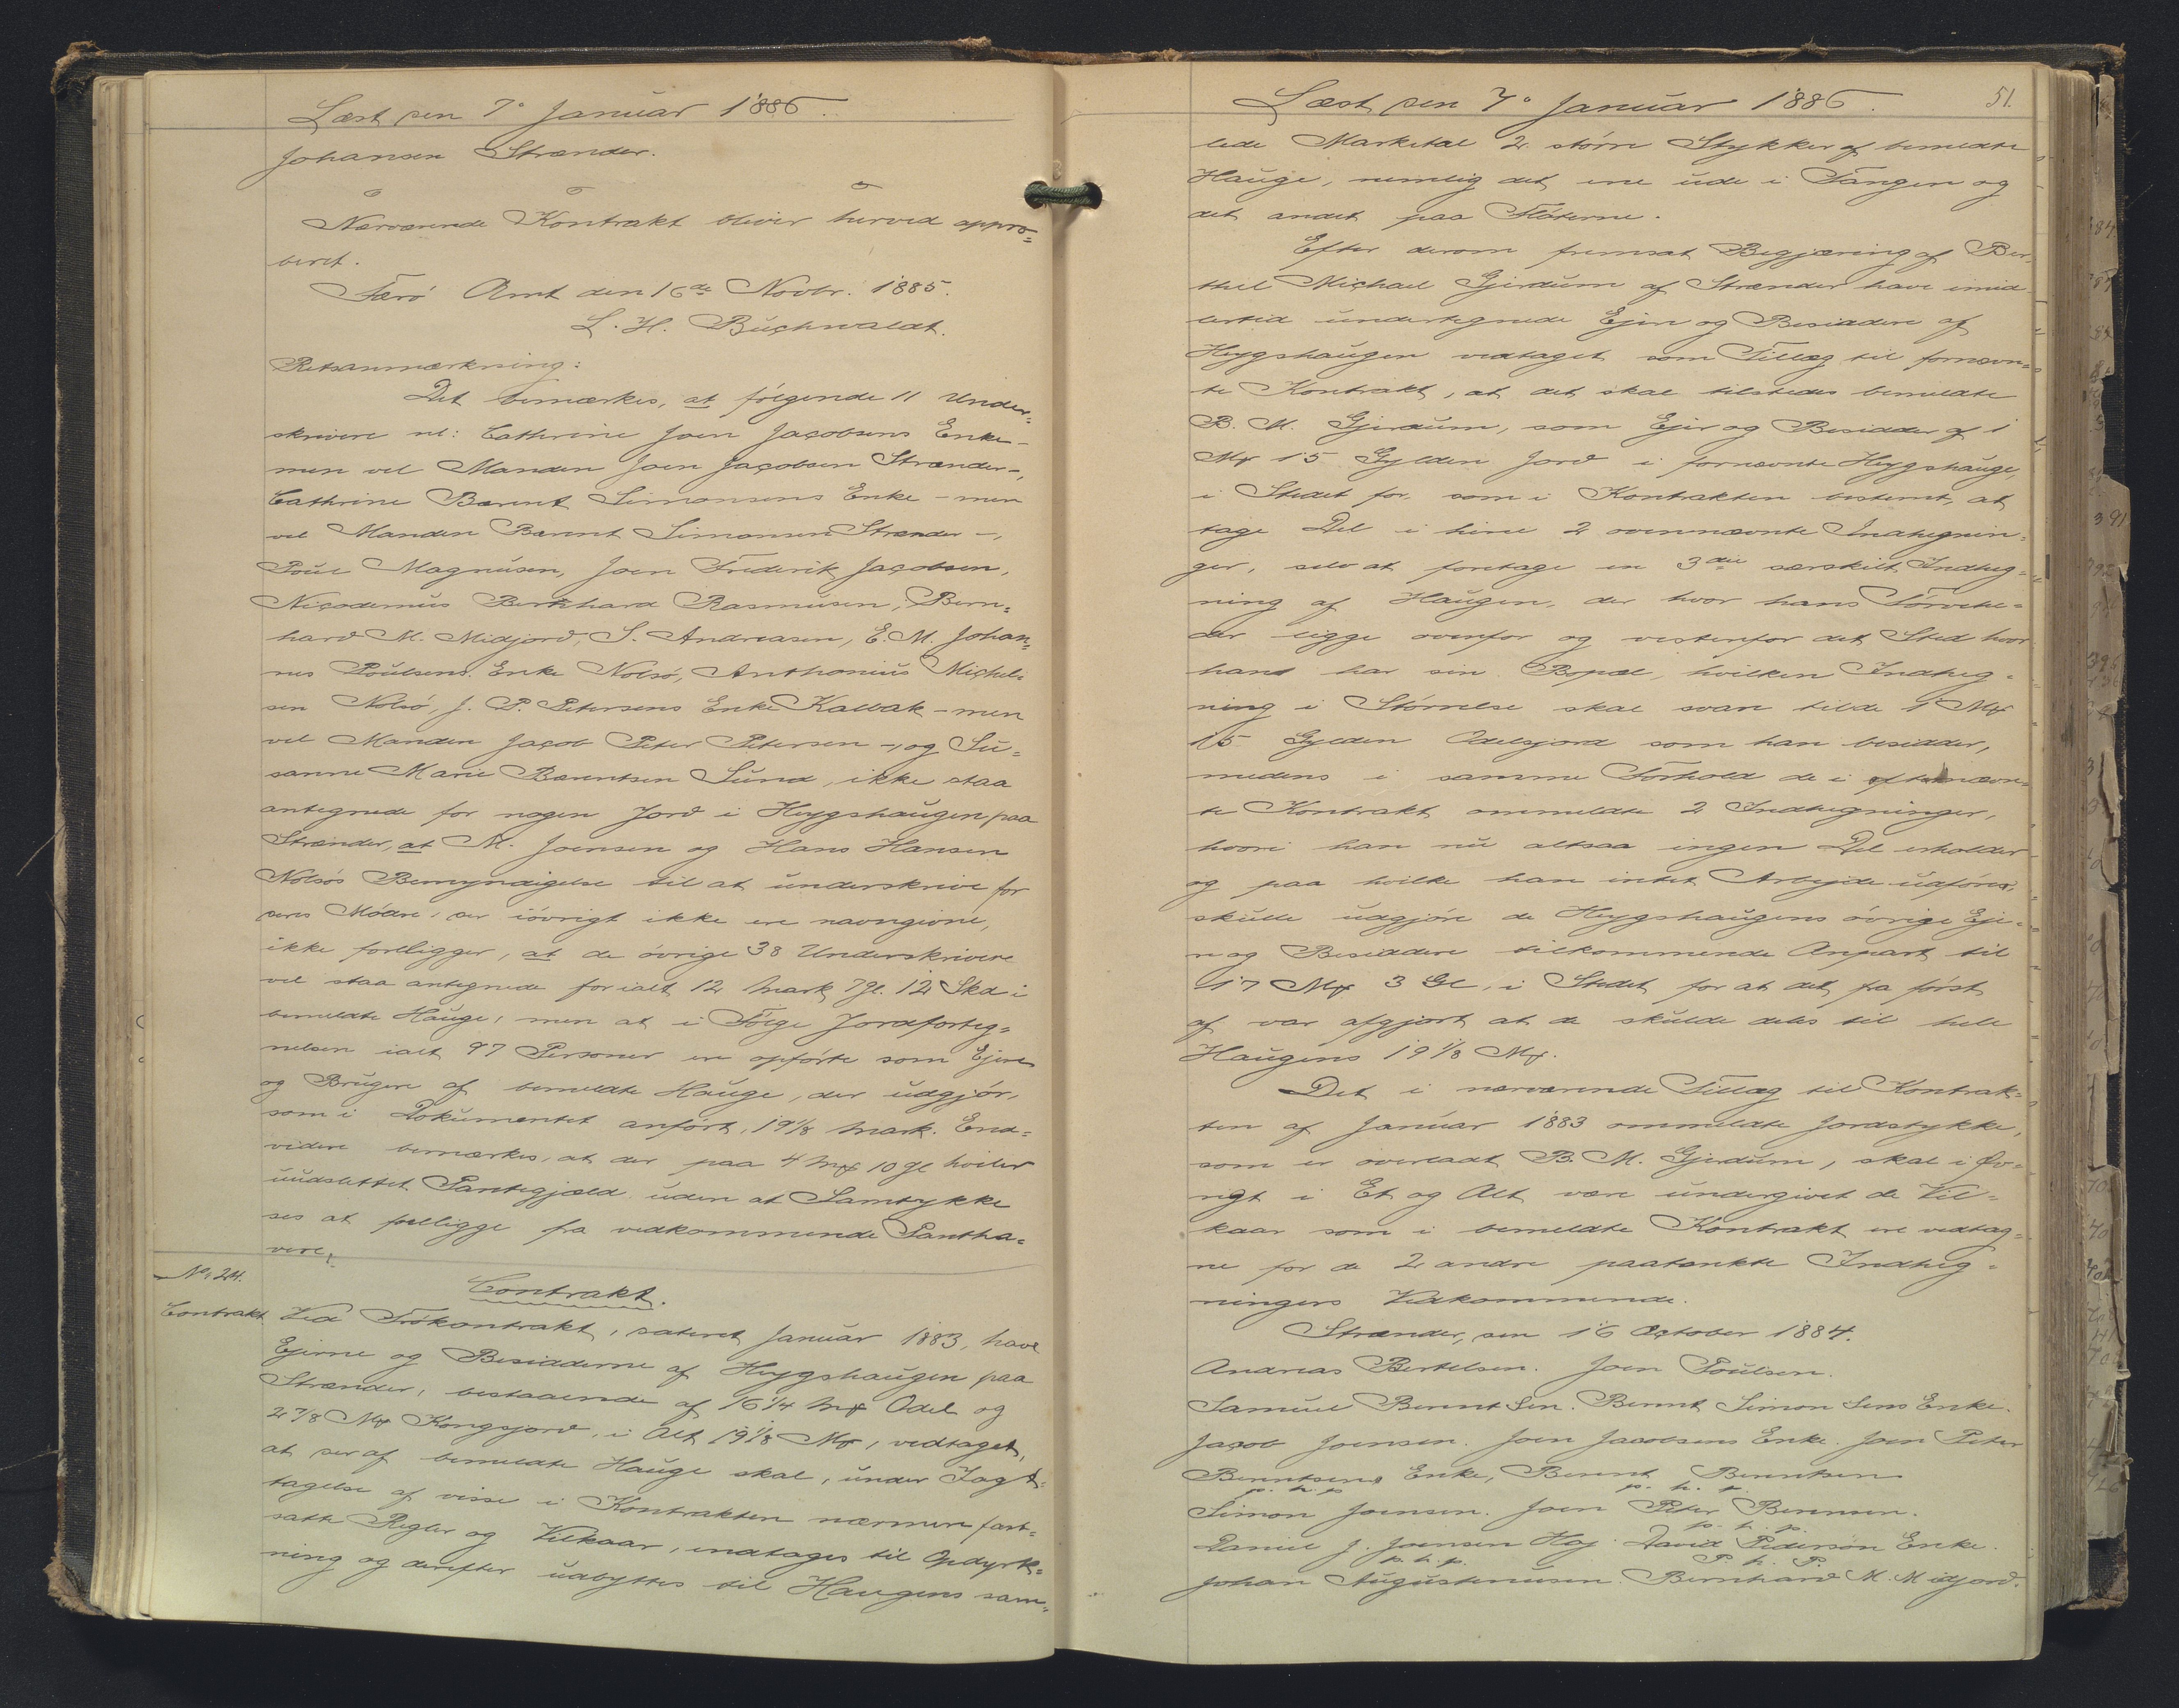 Læst den 7° Januar 1886.
Johansen Strænder.
Nærværende Kontrakt bliver herved appro=
beret.
Færö Amt den 16de Novbr. 1885.
L. H. Buchwaldt.
Retsanmærkning:
Det bemærkes, at følgende 11 Under=
skrivere nl: Cathrine Joen Jacobsens Enke –
men vel Manden Joen Jacobsen Strænder –,
Cathrine Barent Simonsens Enke – men
vel Manden Barent Simonsen Strænder –,
Poul Magnusen, Joen Frederik Jacobsen,
Nicodemus Berthhard Rasmusen, Bern=
hard M. Midjord, S. Andreasen, E. M. Johan=
nes Poulsens Enke Nolsö, Anthonius Michel=
sen Nolsö, J. P. Petersens Enke Kalbak – men
vel Manden Jacob Peter Petersen –, og Su=
sanne Marie Barentsen Sund, ikke staa
antegnede for nogen Jord i Heygshaugen paa
Strænder, at M. Joensen og Hans Hansen
Nolsös Bemyndigelse til at underskrive for
deres Mödre, der iövrigt ikke ere navngivne,
ikke forelligger, at de övrige 38 Underskrivere
vel staa antegnede for ialt 12 Mark 7 Gl. 12 Skd i
bemeldte Hauge, men at i Fölge Jordforteg=
nelsen ialt 97 Personer ere opförte som Ejere
og Brugere af bemeldte Hauge, der udgjör,
som i Dokumentet anfört, 19 1/8 Mark. End=
videre bemærkes, at der paa 4 Mk 10 Gl hviler
uudslettet Pantegjæld uden at Samtykke
ses at foreligge fra vedkommende Pantha=
vere.
No. 24.
Contrakt.
Contrakt
Ved Trökontrakt, dateret Januar 1883, have
Ejerne og Besidderne af Heygshaugen paa
Strænder, bestaaende af 16 1/4 Mk Odel og
2 7/8 Mk Kongsjord, i Alt 19 1/8 Mk, vedtaget,
at der af bemeldte Hauge skal, under Iagt=
tagelse af visse i Kontrakten nærmere fast=
satte Regler og Vilkaar, indtages til Opdyrk=
ning og derefter udbyttes til Haugens sam=
Læst den 7° Januar 1886.
51.
lede Marketal 2 större Stykker af bemeldte
Hauge, nemlig det ene ude i Tangen og
det andet paa Fløterne.
Efter derom fremsat Begjæring af Ber=
thel Michael Gjerdum af Strænder have imid=
lertid undertegnede Ejere og Besiddere af
Heygshaugen vedtaget som Tillæg til fornævn=
te Kontrakt, at det skal tilstedes bemeldte
B. M. Gjerdum, som Ejer og Besidder af 1
Mk 15 Gylden Jord i fornævnte Heygshauge,
i Stedet for som i Kontrakten bestemt, at
tage Del i hine 2 ovennævnte Indhegnin=
ger, selv at foretage en 3die særskilt Indheg=
ning af Haugen, der hvor hans Törvehe=
der ligge ovenfor og vestenfor det Sted hvor
hans har sin Bopæl, hvilken Indheg=
ning i Störrelse skal svare til de 1 Mk
15 Gylden Odelsjord som han besidder,
medens i samme Forhold de i oftenævn=
te Kontrakt ommeldte 2 Indhegninger,
hvori han nu altsaa ingen Del erholder
og paa hvilke han intet Arbejde udförer,
skulle udgjöre de Heygshaugens övrige Eje=
re og Besiddere tilkommende Anpart til
17 Mk 3 Gl, i Stedet for at det fra först
af var afgjort at de skulde deles til hele
Haugens 19 1/8 Mk.
Det i nærværende Tillæg til Kontrak=
ten af Januar 1883 ommeldte Jordstykke,
som er overladt B. M. Gjerdum, skal i Öv=
rigt i Et og Alt være undergivet de Vil=
kaar som i bemeldte Kontrakt ere vedtag=
ne for de 2 andre paatænkte Indheg=
ningers Vedkommende.
Strænder, den 16 October 1884.
Andreas Bertelsen. Joen Poulsen.
Samuel Berent Sen. Berent Simon Sens Enke.
Jacob Joensen. Joen Jacobsens Enke. Joen Peter
Berentsens Enke, Berent Berentsen
p. h. p. p. h. p.
Simon Joensen. Joen Peter Berensen.
p. h. p.
Daniel J. Joensen Høj. David Pedersön Enke.
p. h. p. P. h. P.
Johan Augustenusen. Bernhard M. Midjord.